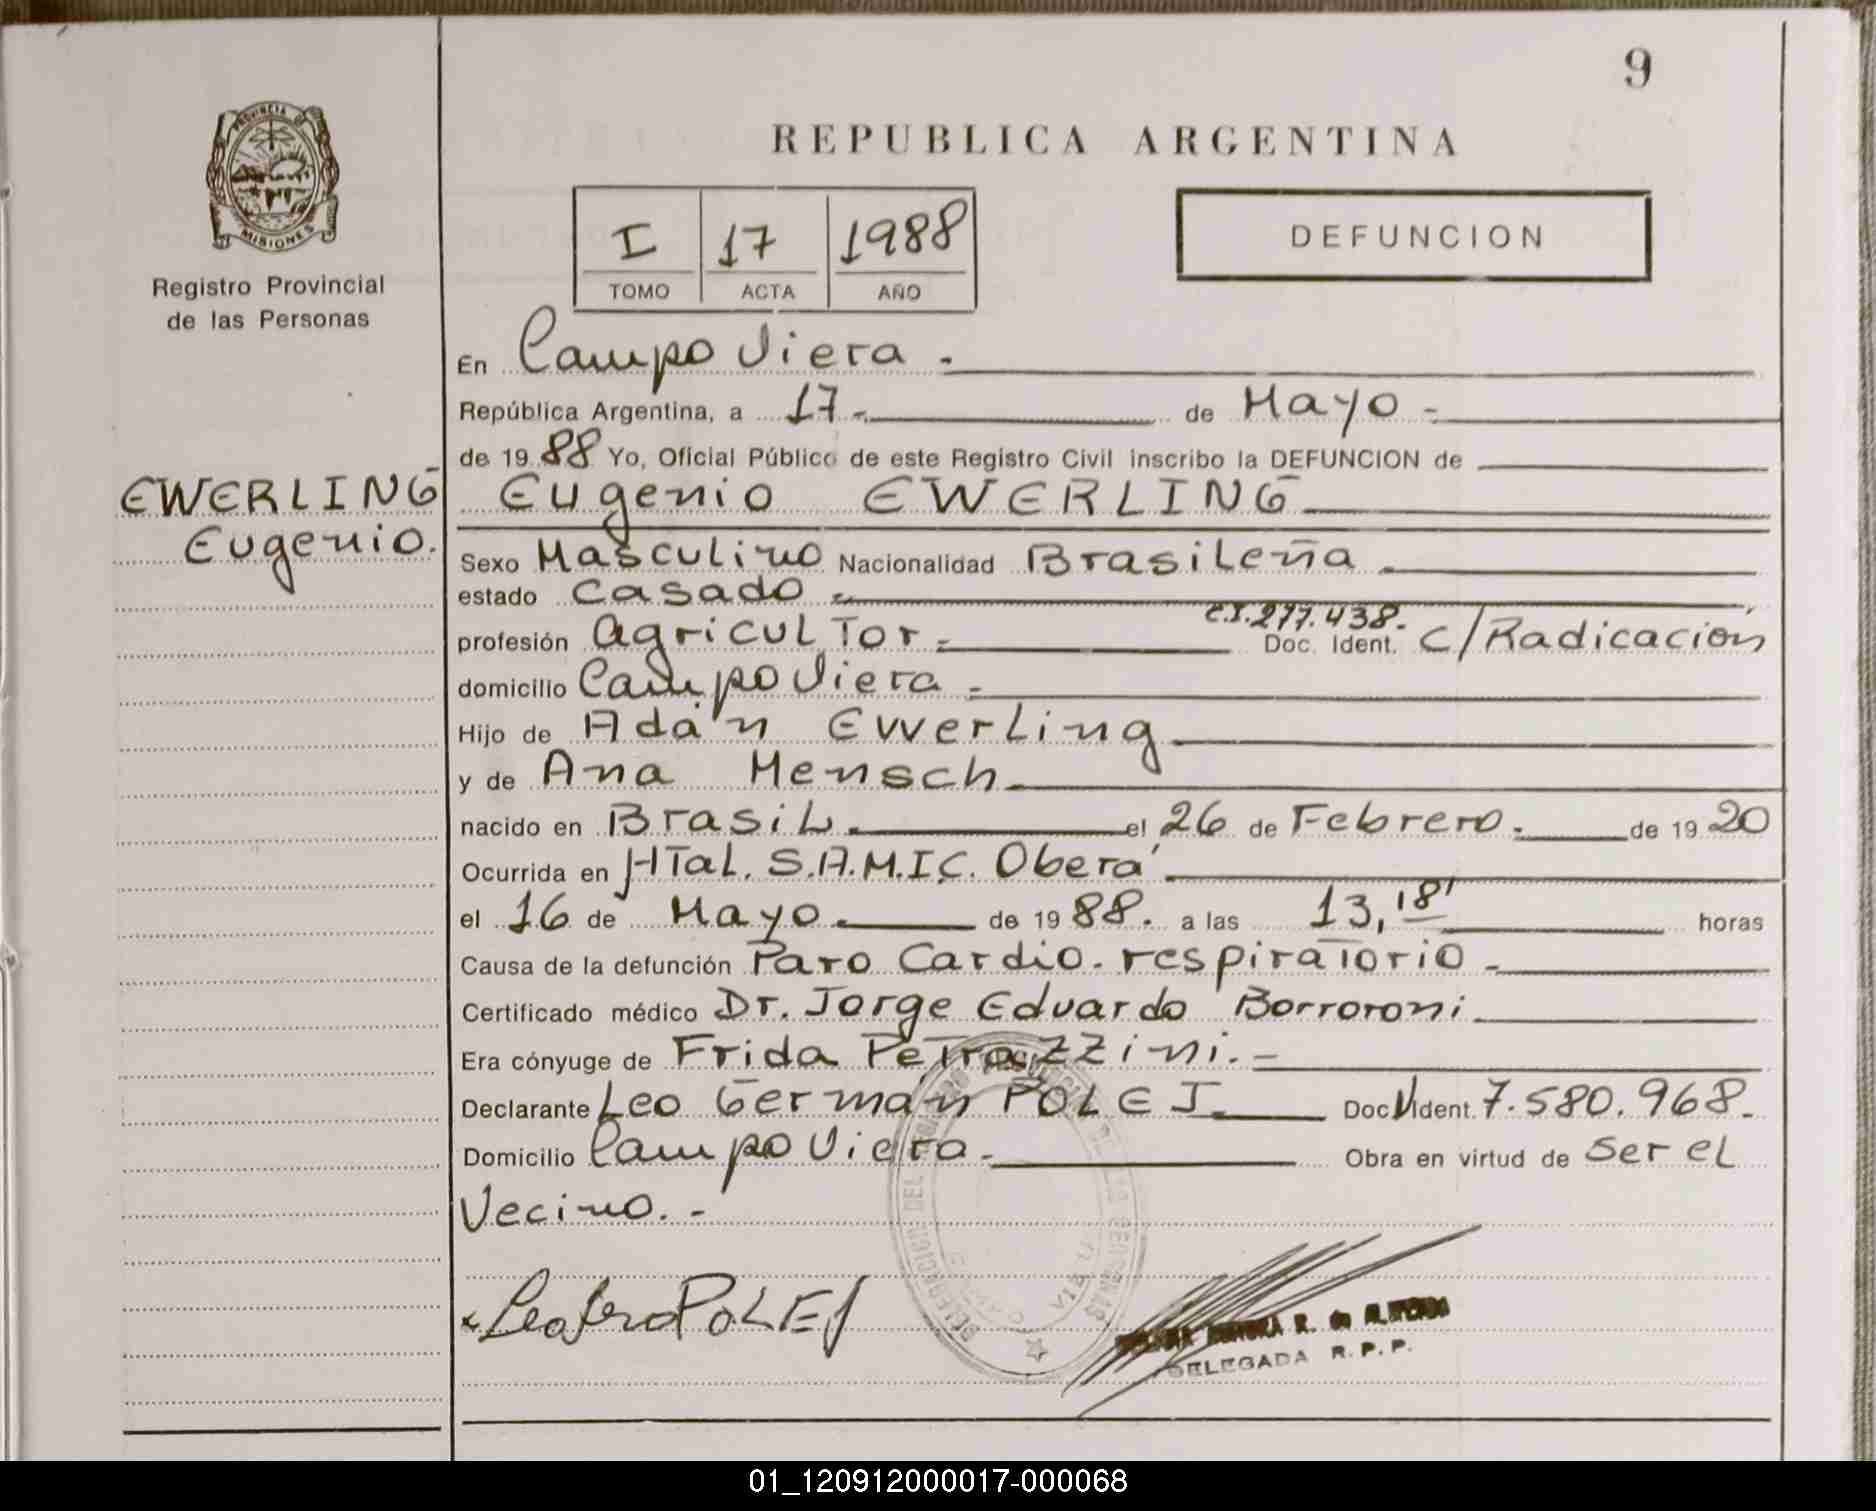 9
PROVINCIA DE
MISIONES
Registro Provincial
de las Personas
REPUBLICA ARGENTINA
I 17 1988
TOMO ACTA AÑO
DEFUNCION
EWERLING
Eugenio.
En Campo Viera.
República Argentina, a 17. de Mayo
de 19 88 Yo, Oficial Público de este Registro Civil inscribo la DEFUNCION de
Eugenio EWERLING
Sexo Masculino Nacionalidad Brasileña
estado casado
C.I. 277.438.
profesión agricultor Doc. Ident. C/Radicación
domicilio Campo Viera
Hijo de Adán Ewerling
y de Ana Mensch
nacido en Brasil. el 26 de Febrero. de 19 20
Ocurrida en HTal. S.A.M.I.C. Oberá
el 16 de Mayo. de 19 88. a las 13,18' horas
Causa de la defunción Paro Cardio-respiratorio
Certificado médico Dr. Jorge Eduardo Borroroni
Era cónyuge de Frida Petrazzini.
Declarante Leo Germán POLEJ Doc. Ident. 7.580.968.
Domicilio Campo Viera Obra en virtud de ser el
Vecino.-
POLEJ
R. de ALMEIDA
DELEGADA R.P.P.
01_120912000017-000068